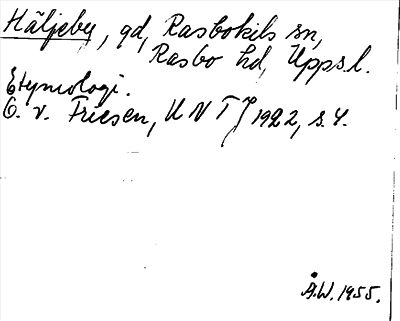 Häljeby, gd, Rasbokils sn,
Rasbo hd, Uppsl.
Etymologi.
O. v. Friesen, UNT 1922, s. 4.
Å.W. 1955.